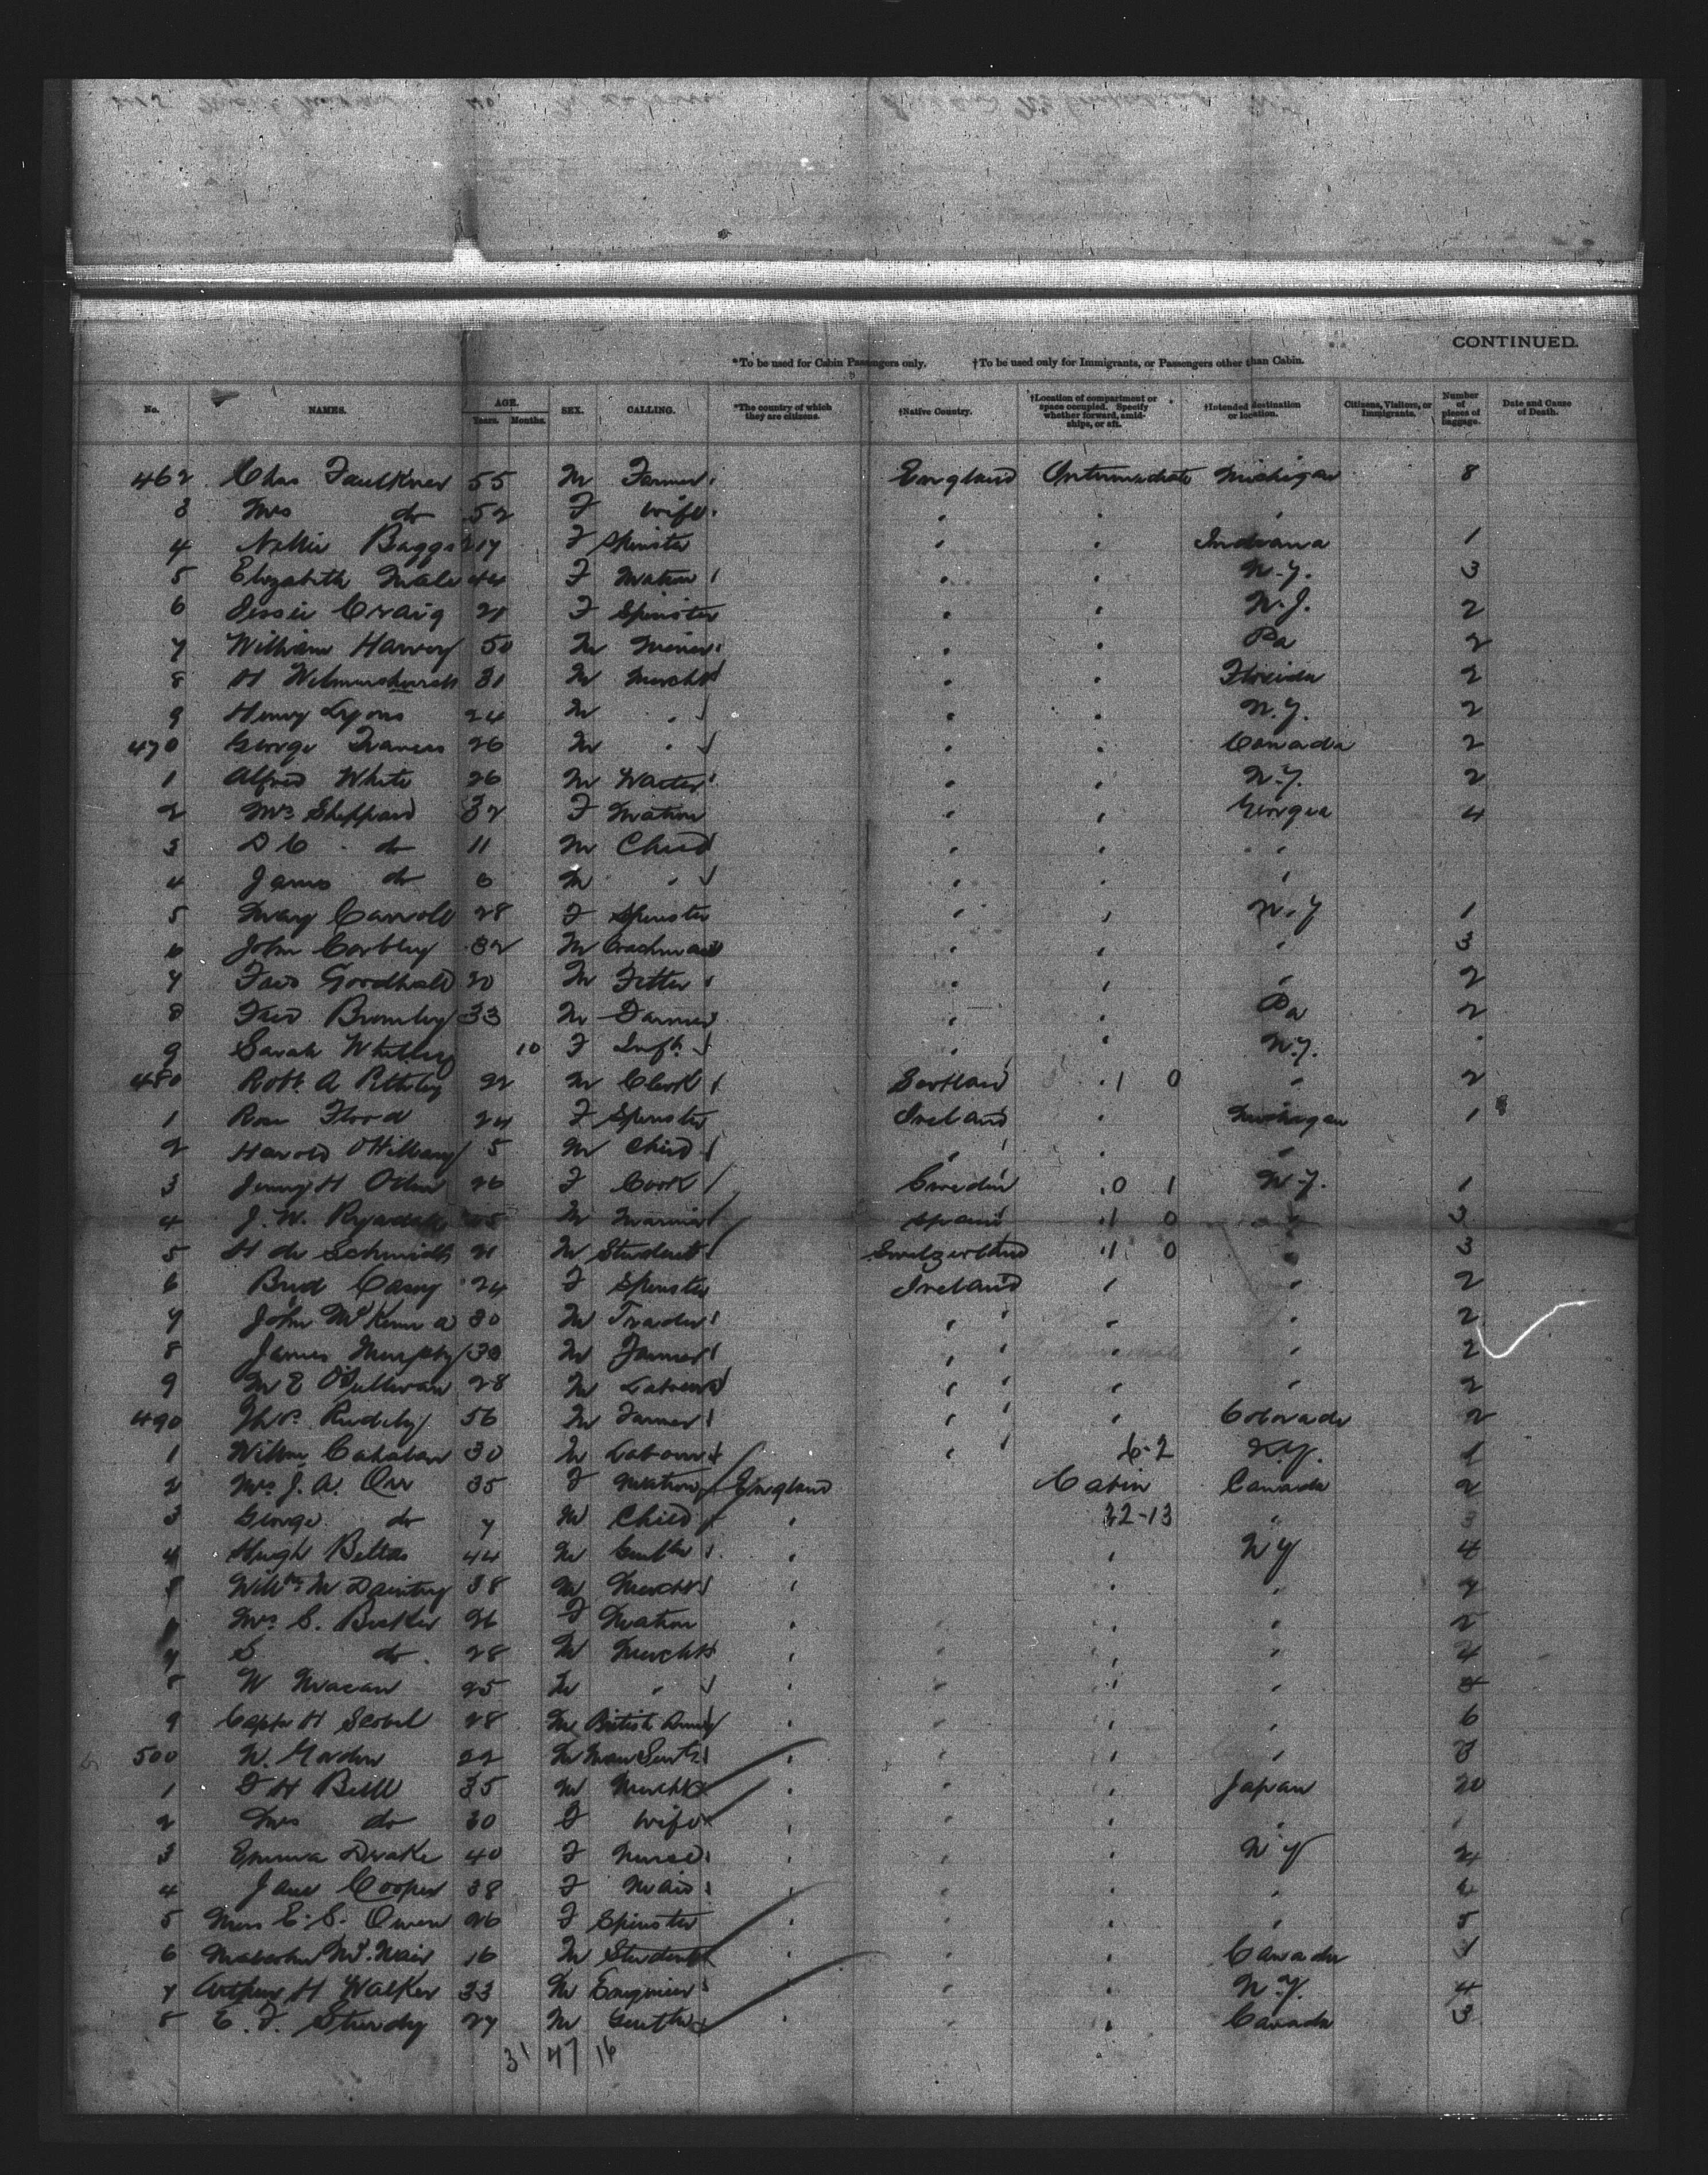 CONTINUED.
*To be used for Cabin Passengers only. †To be used only for Immigrants, or Passengers other than Cabin.
No. NAMES. AGE. Years. Months. SEX. CALLING. *The country of which they are citizens. †Native Country. †Location of compartment or space occupied. Specify whether forward, amidships, or aft. †Intended destination or location. Citizens, Visitors, or Immigrants. Number of pieces of luggage. Date and Cause of Death.
462 Chas Faulkner 55 M Farmer England Intermediate Michigan 8
3 Mrs do 52 F wife " " "
4 Nellie Baggs F Spinster " " Indiana 1
5 Elizabeth Male 44 F Matron " " N.Y. 3
6 Jessie Craig 21 F Spinster " " N.J. 2
7 William Harvey 50 M Miner " " Pa 2
8 H Wilmurshurst 31 M Mercht " " Florida 2
9 Henry Lyons 24 M " " " N.Y. 2
470 George Francis 26 M " " " Canada 2
1 Alfred White 26 M Waiter " " N.Y. 2
2 Mrs Sheppard 32 F Matron " " Georgia 4
3 D C do 11 M Child " " "
4 James do 6 M " " " "
5 Mary Carroll 28 F Spinster " " N.Y 1
6 John Corbley 32 M Coachman " " " 3
7 Fred Goodhall 20 M Fitter " " " 2
8 Fred Bromley 33 M Farmer " " Pa 2
9 Sarah Whitley 10 F Inft " " N.Y. "
480 Robt A 22 M Clerk Scotland 1 0 " 2
1 Rose Flood 24 F Spinster Ireland " Michigan 1
2 Harold 5 M Child " " "
3 Jenny H 26 F Cook Sweden 0 1 N.Y. 1
4 J. W. M Spain 1 0 " 3
5 H de Schmidt 21 M Student Switzerland 1 0 " 3
6 Brid Casey 24 F Spinster Ireland " " 2
7 John McKenna 30 M Trader " " " 2
8 James Murphy 30 M Farmer " " " 2
9 M E O'Sullivan 28 M Labourer " " " 2
490 56 M Farmer " " Colorado 2
1 Willm Cahalan 30 M Labourer " 6-2 N.Y. 1
2 Mrs J. A. Orr 35 F Matron England Cabin Canada 2
3 George do 7 M Child " 32-13 " 3
4 Hugh 44 M Gentln " " N Y 4
5 Willm M Daintry 38 M Mercht " " " "
6 Mrs S. 26 F Matron " " " " 2
7 S do 28 M Mercht " " " " 4
8 W Macan 25 M " " " " "
9 Capt H Scobel 28 M British Army " " " " 6
500 W. Gordon 22 M " " " "
1 F H Bell 35 M Mercht " " " Japan 20
2 Mrs do 30 F wife " " " "
3 Emma Drake 40 F Nurse " " " N Y
4 Jane Cooper 38 F Maid " " " "
5 Miss E. S. Owen 26 F Spinster " " " " 5
6 Malcolm McNair 16 M Student " " " Canada 1
7 Arthur H Walker 33 M Engineer " " " N.Y. 4
8 E. F. Sturdy 27 M Gentln " " " Canada 3
31 47 16